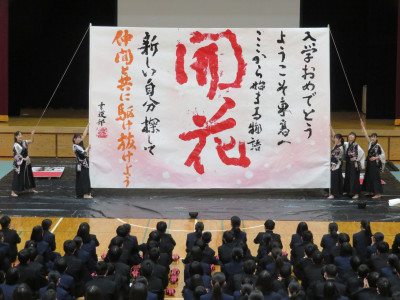 入学おめでとう
ようこそ東高へ
ここから始まる物語
開花
新しい自分探して
仲間と共に駆け抜けよう
書道部